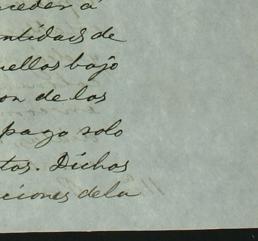 ceder á
ntidad de
uellos bajo
on de los
pago solo
tos. Dichos
ciones dela